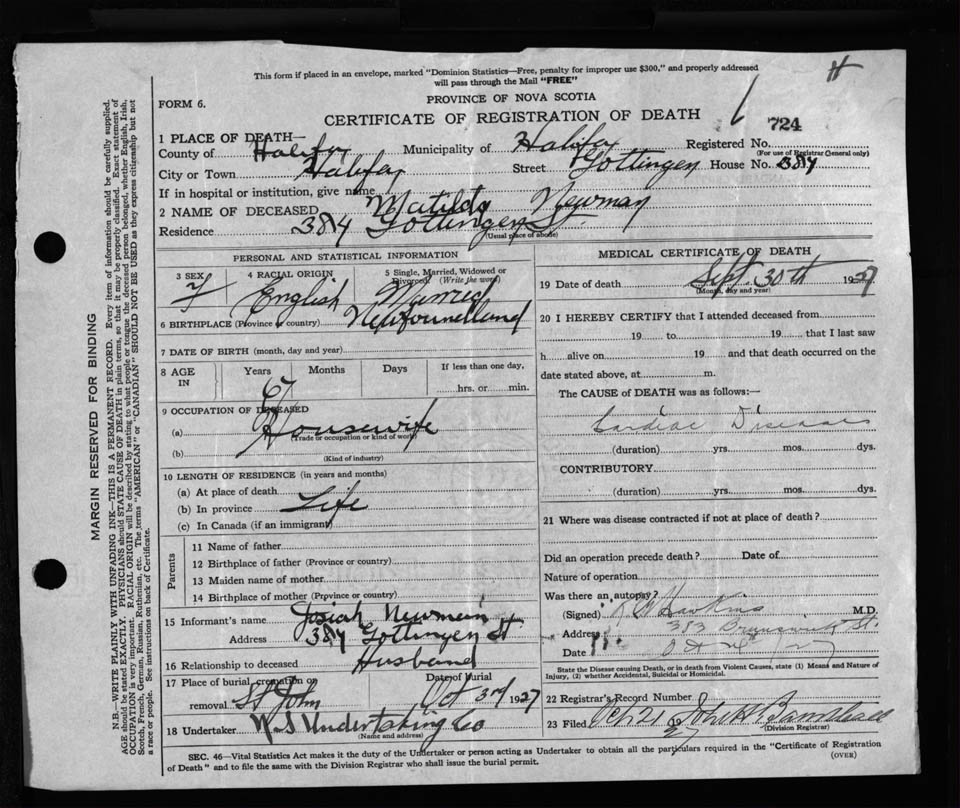 This form if placed in an envelope, marked "Dominion Statistics—Free, penalty for improper use $300," and properly addressed
will pass through the Mail "FREE"
H
FORM 6.
PROVINCE OF NOVA SCOTIA
CERTIFICATE OF REGISTRATION OF DEATH
724
1 PLACE OF DEATH—
County of Halifax Municipality of Halifax Registered No.
(For use of Registrar General only)
City or Town Halifax Street Gottingen House No. 384
If in hospital or institution, give name
2 NAME OF DECEASED Matilda Newman
Residence 384 Gottingen St
(Usual place of abode)
PERSONAL AND STATISTICAL INFORMATION
3 SEX F
4 RACIAL ORIGIN English
5 Single, Married, Widowed or Divorced. (Write the word) Married
6 BIRTHPLACE (Province or country) Newfoundland
7 DATE OF BIRTH (month, day and year)
8 AGE IN Years 67 Months Days If less than one day, hrs. or min.
9 OCCUPATION OF DECEASED
(a) Housewife
(Trade or occupation or kind of work)
(b)
(Kind of industry)
10 LENGTH OF RESIDENCE (in years and months)
(a) At place of death
(b) In province Life
(c) In Canada (if an immigrant)
Parents
11 Name of father
12 Birthplace of father (Province or country)
13 Maiden name of mother
14 Birthplace of mother (Province or country)
15 Informant's name Josiah Newman
Address 384 Gottingen St
16 Relationship to deceased Husband
17 Place of burial, cremation or removal St John Date of burial Oct 3rd 1927
18 Undertaker N.S Undertaking Co
(Name and address)
MEDICAL CERTIFICATE OF DEATH
19 Date of death Sept. 30th 1927
(Month, day and year)
20 I HEREBY CERTIFY that I attended deceased from
19 to 19 that I last saw
h alive on 19 and that death occurred on the
date stated above, at m.
The CAUSE of DEATH was as follows:—
Cardiac Disease
(duration) yrs. mos. dys.
CONTRIBUTORY
(duration) yrs. mos. dys.
21 Where was disease contracted if not at place of death?
Did an operation precede death? Date of
Nature of operation
Was there an autopsy?
(Signed) Hawkins M.D.
Address 383 Brunswick St.
Date
State the Disease causing Death, or in death from Violent Causes, state (1) Means and Nature of
Injury, (2) whether Accidental, Suicidal or Homicidal.
22 Registrar's Record Number
23 Filed Oct 21 19 27
(Division Registrar)
SEC. 46—Vital Statistics Act makes it the duty of the Undertaker or person acting as Undertaker to obtain all the particulars required in the "Certificate of Registration
of Death" and to file the same with the Division Registrar who shall issue the burial permit.
(OVER)
MARGIN RESERVED FOR BINDING
N.B.—WRITE PLAINLY WITH UNFADING INK—THIS IS A PERMANENT RECORD. Every item of information should be carefully supplied.
AGE should be stated EXACTLY. PHYSICIANS should STATE CAUSE OF DEATH in plain terms, so that it may be properly classified. Exact statement of
OCCUPATION is very important. RACIAL ORIGIN will be described by stating to what people or tongue the deceased person belonged, whether English, Irish,
Scotch, French, German, Russian, Ruthenian, etc. The terms "AMERICAN" or "CANADIAN" SHOULD NOT BE USED as they express citizenship but not
a race or people. See instructions on back of Certificate.